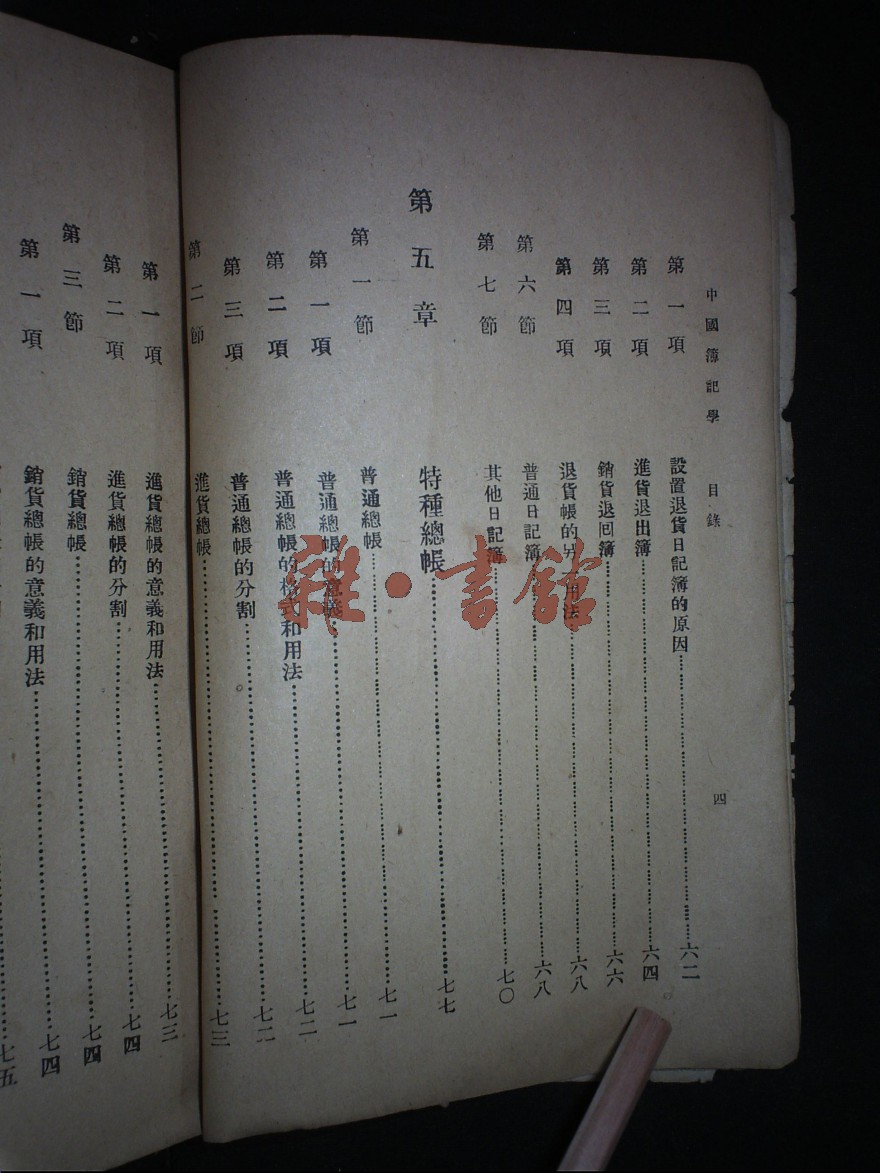 中國簿記學 目錄 四
第一項 設置退貨日記簿的原因 六二
第二項 進貨退出簿 六四
第三項 銷貨退回簿 六六
第四項 退貨帳的另一用法 六八
第六節 普通日記簿 六八
第七節 其他日記簿 七〇
第五章 特種總帳 七七
第一節 普通總帳 七一
第一項 普通總帳的意義 七一
第二項 普通總帳的格式和用法 七二
第三項 普通總帳的分割 七二
第二節 進貨總帳 七三
第一項 進貨總帳的意義和用法 七三
第二項 進貨總帳的分割 七四
第三節 銷貨總帳 七四
第一項 銷貨總帳的意義和用法 七四
七五
雜·書館